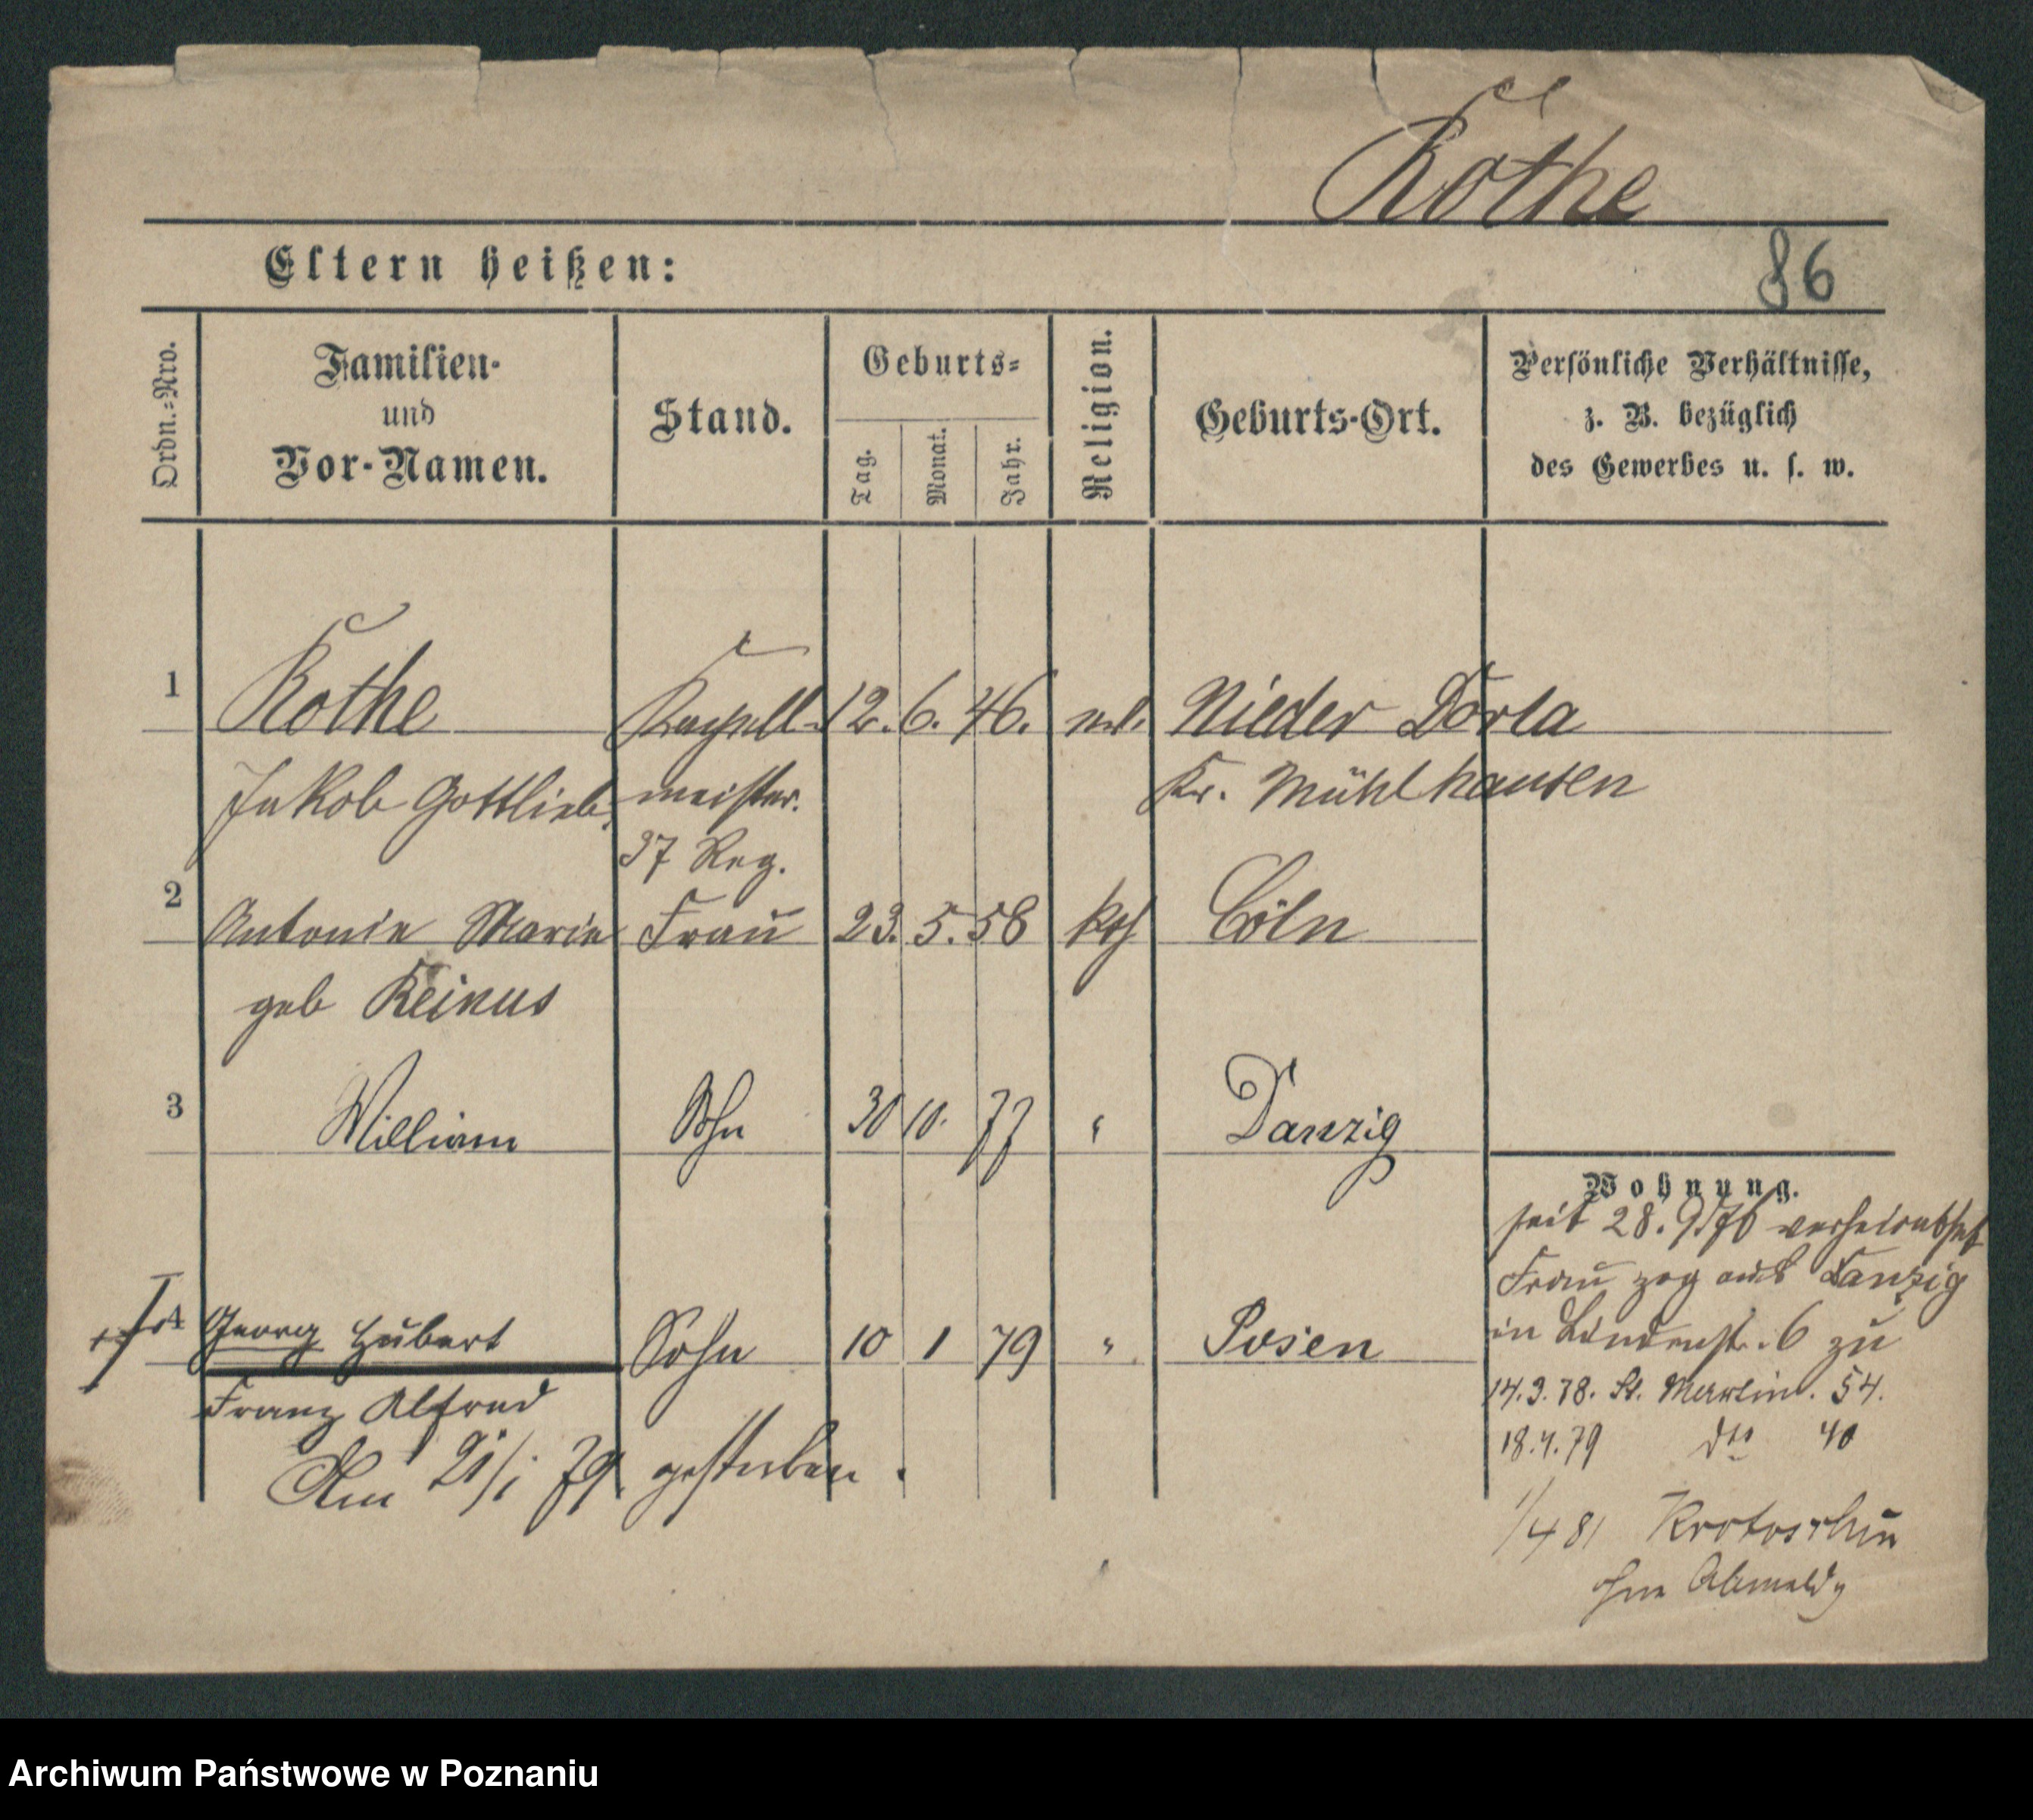 Rothe
Eltern heißen:
86
Ordn.-Nro.
Familien-
und
Vor-Namen.
Stand.
Geburts-
Tag.
Monat.
Jahr.
Religion.
Geburts-Ort.
Persönliche Verhältnisse,
z. B. bezüglich
des Gewerbes u. s. w.
1 Rothe Kapell- 12. 6. 46. Nieder Dorla
Jakob Gottlieb meister. Kr. Mühlhausen
37 Reg.
2 Antonie Marie Frau 23. 5. 58 kth Cöln
geb Reinus
3 William Sohn 30 10. 77 " Danzig
4 Georg Hubert Sohn 10 1 79 " Posen
Franz Alfred
Am 21/1 79 gestorben.
Wohnung.
seit 28. 9 76 verheirathet
Frau zog aus Danzig
in Lindenstr. 6 zu
14.3.78. St. Martin. 54.
18.4.79 dto 40
1/4 81 Krotoschin
ohne Abmeldg
Archiwum Państwowe w Poznaniu